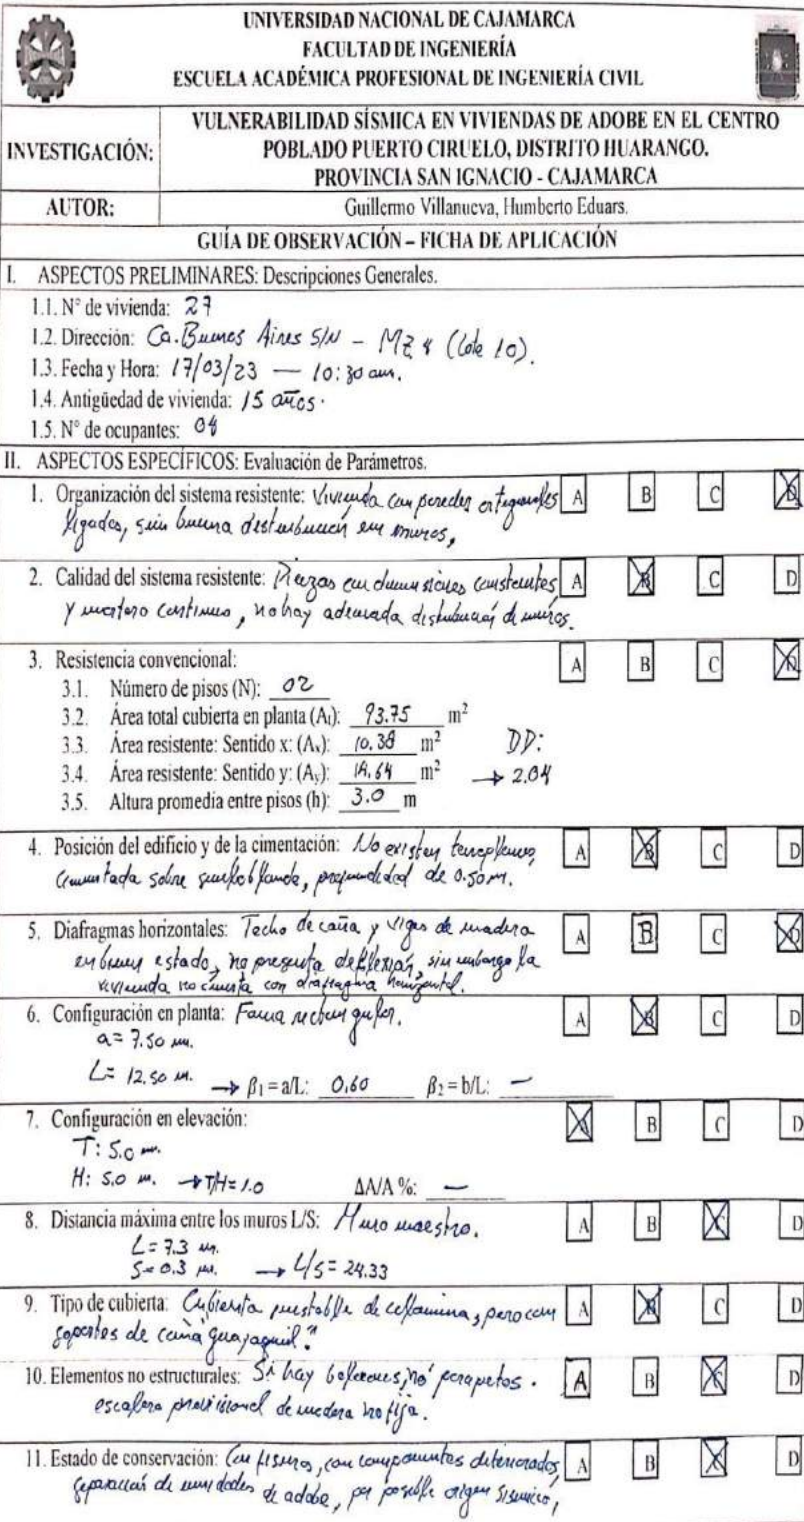 UNIVERSIDAD NACIONAL DE CAJAMARCA
FACULTAD DE INGENIERÍA
ESCUELA ACADÉMICA PROFESIONAL DE INGENIERÍA CIVIL
INVESTIGACIÓN:
VULNERABILIDAD SÍSMICA EN VIVIENDAS DE ADOBE EN EL CENTRO
POBLADO PUERTO CIRUELO, DISTRITO HUARANGO.
PROVINCIA SAN IGNACIO - CAJAMARCA
AUTOR: Guillermo Villanueva, Humberto Eduars.
GUÍA DE OBSERVACIÓN – FICHA DE APLICACIÓN
I. ASPECTOS PRELIMINARES: Descripciones Generales.
1.1. N° de vivienda: 27
1.2. Dirección: Ca. Buenos Aires S/N - MZ (Lote 10).
1.3. Fecha y Hora: 17/03/23 — 10:30 am.
1.4. Antigüedad de vivienda: 15 años.
1.5. N° de ocupantes: 04
II. ASPECTOS ESPECÍFICOS: Evaluación de Parámetros.
1. Organización del sistema resistente: Vivienda con paredes ortogonales A B C D
ligadas, sin buena distribución en muros,
2. Calidad del sistema resistente: Piezas con dimensiones constantes A B C D
y mortero continuo, no hay adecuada distribución de muros.
3. Resistencia convencional: A B C D
3.1. Número de pisos (N): 02
3.2. Área total cubierta en planta (At): 93.75 m²
3.3. Área resistente: Sentido x: (Ax): 10.38 m² DD:
3.4. Área resistente: Sentido y: (Ay): 14.64 m² → 2.04
3.5. Altura promedia entre pisos (h): 3.0 m
4. Posición del edificio y de la cimentación: No existen terraplenes, A B C D
cimentada sobre suelo blando, profundidad de 0.50m.
5. Diafragmas horizontales: Techo de caña y vigas de madera A B C D
en buen estado, no presenta deflexión, sin embargo la
vivienda no cuenta con diafragma horizontal.
6. Configuración en planta: Forma rectangular. A B C D
a= 7.50 m.
L= 12.50 m. → β1 = a/L: 0.60 β2 = b/L: —
7. Configuración en elevación: A B C D
T: 5.0 m.
H: 5.0 m. → T/H= 1.0 ΔA/A %: —
8. Distancia máxima entre los muros L/S: Muro maestro. A B C D
L= 7.3 m.
S= 0.3 m. → L/S= 24.33
9. Tipo de cubierta: Cubierta inestable de calamina, pero con A B C D
soportes de caña guayaquil.
10. Elementos no estructurales: Si hay balcones, no parapetos. A B C D
escalera provisional de madera no fija.
11. Estado de conservación: Con fisuras, con componentes deteriorados, A B C D
separación de unidades de adobe, por posible origen sísmico,